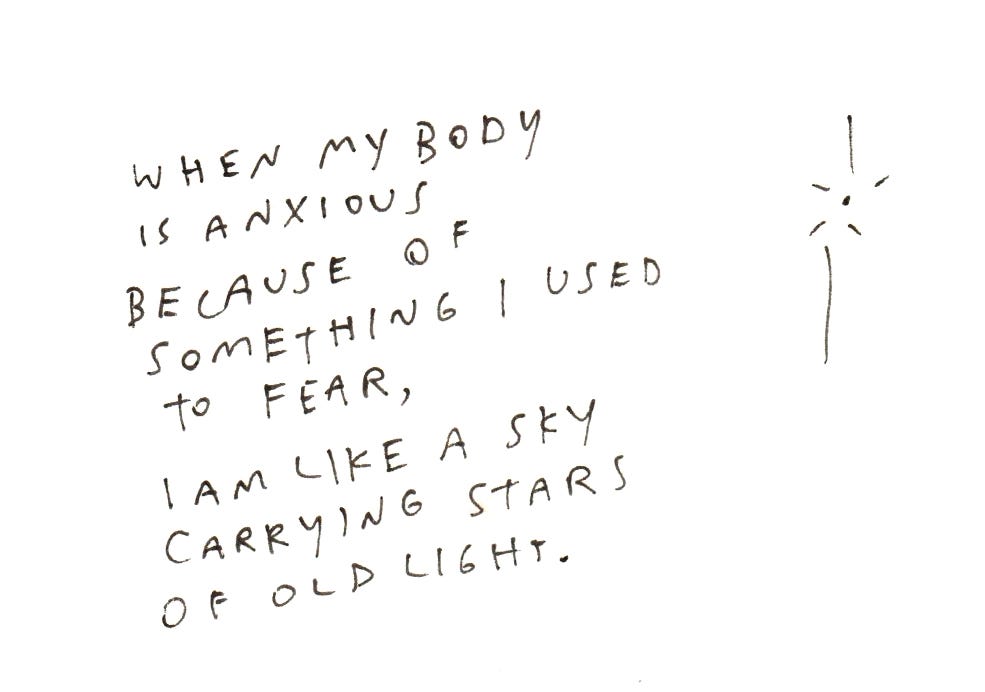 WHEN MY BODY
IS ANXIOUS
BECAUSE OF
SOMETHING I USED
TO FEAR,
I AM LIKE A SKY
CARRYING STARS
OF OLD LIGHT.